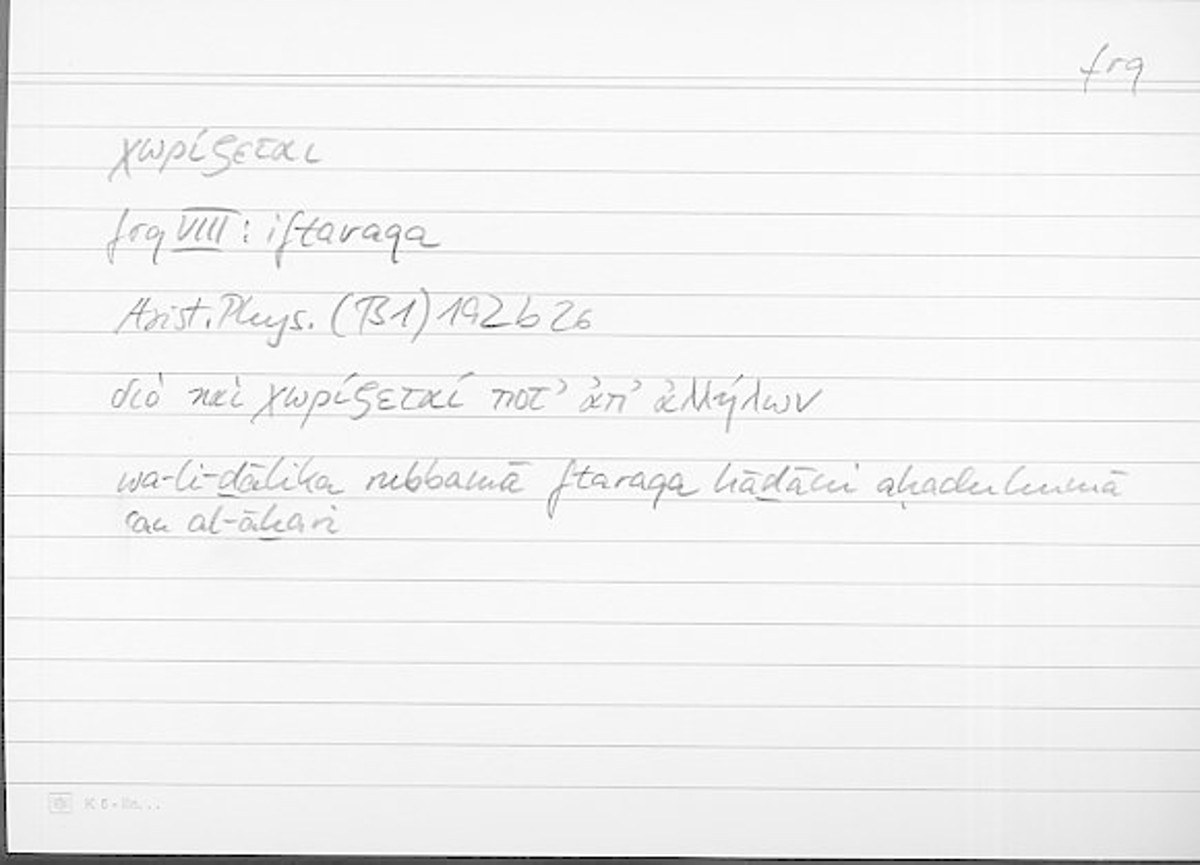 frq
χωρίζεται
frq VIII : iftaraqa
Arist. Phys. (B1) 192 b 26
διὸ καὶ χωρίζεταί ποτ' ἀπ' ἀλλήλων
wa-li-ḏālika rubbamā ftaraqa hāḏāni aḥaduhumā
ʿan al-āḫari